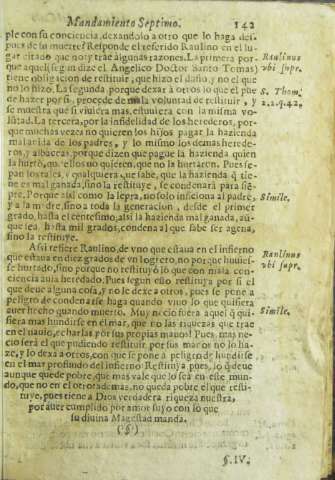 Mandamiento Septimo. 142
ple con su conciencia, dexandolo a otro que lo haga des-
pues de su muerte? Responde el referido Raulino en el lu-
gar citado que no, y trae algunas razones. La primera por-
que aquel (segun dize el Angelico Doctor Santo Tomas)
tiene obligacion de restituir, que hizo el daño, y no el que
no lo hizo. La segunda, porque dexar a otros lo que el pue
de hazer por si, procede de mala voluntad de restituir, y
se muestra que si viuiera mas, estuuiera con la misma vo-
lũtad. La tercera, por la infidelidad de los herederos, por-
que muchas vezes no quieren los hijos pagar la hazienda
mal auida de los padres, y lo mismo los demas herede-
ros, y albaceas, porque dizen que pague la hazienda quien
la hurtò, que ellos no quieren, que no la hurtaron. Pues se-
pan los tales, y qualquiera que sabe, que la haziẽda q̃ tie-
ne es mal ganada, sino la restituye, se condenarà para siẽ-
pre. Porque assi como la lepra, no solo inficiona al padre,
y a la madre, sino a toda la generacion, desde el primer
grado, hasta el centesimo, assi la hazienda mal ganada, aũ-
que sea hasta mil grados, condena al que sabe ser agena,
sino la restituye.
Assi refiere Raulino, de vno que estaua en el infierno
que estaua en diez grados de vn logrero, no porque huuies-
se hurtado, sino porque no restituyò lo que con mala con-
ciencia auia heredado. Pues segun esto restituya por si el
que deue alguna cosa, y no lo dexe a otros, pues se pone a
peligro de condenarse haga quando viuo lo que quisiera
auer hecho quando muerto. Muy necio fuera aquel q̃ qui-
siera mas hundirse en el mar, que no las riquezas que trae
en el nauio, echarlas por sus propias manos! Pues mas ne-
cio serà el que pudiendo restituir por sus manos no lo ha-
ze, y lo dexa a otros, con que se pone a peligro de hundirse
en el mar profundo del infierno. Restituya pues, lo q̃ deue
aunque quede pobre, que mas vale que lo sea en este mun-
do, que no en el otro: ademas, no queda pobre el que resti-
tuye, pues tiene a Dios verdadera riqueza nuestra,
por auer cumplido por amor suyo con lo que
su diuina Magestad manda.
(·§·)
§. IV.
Raulinus
vbi supr.
S. Thom.
2. 2. q. 42.
Simile.
Raulinus
vbi supr.
Simile.